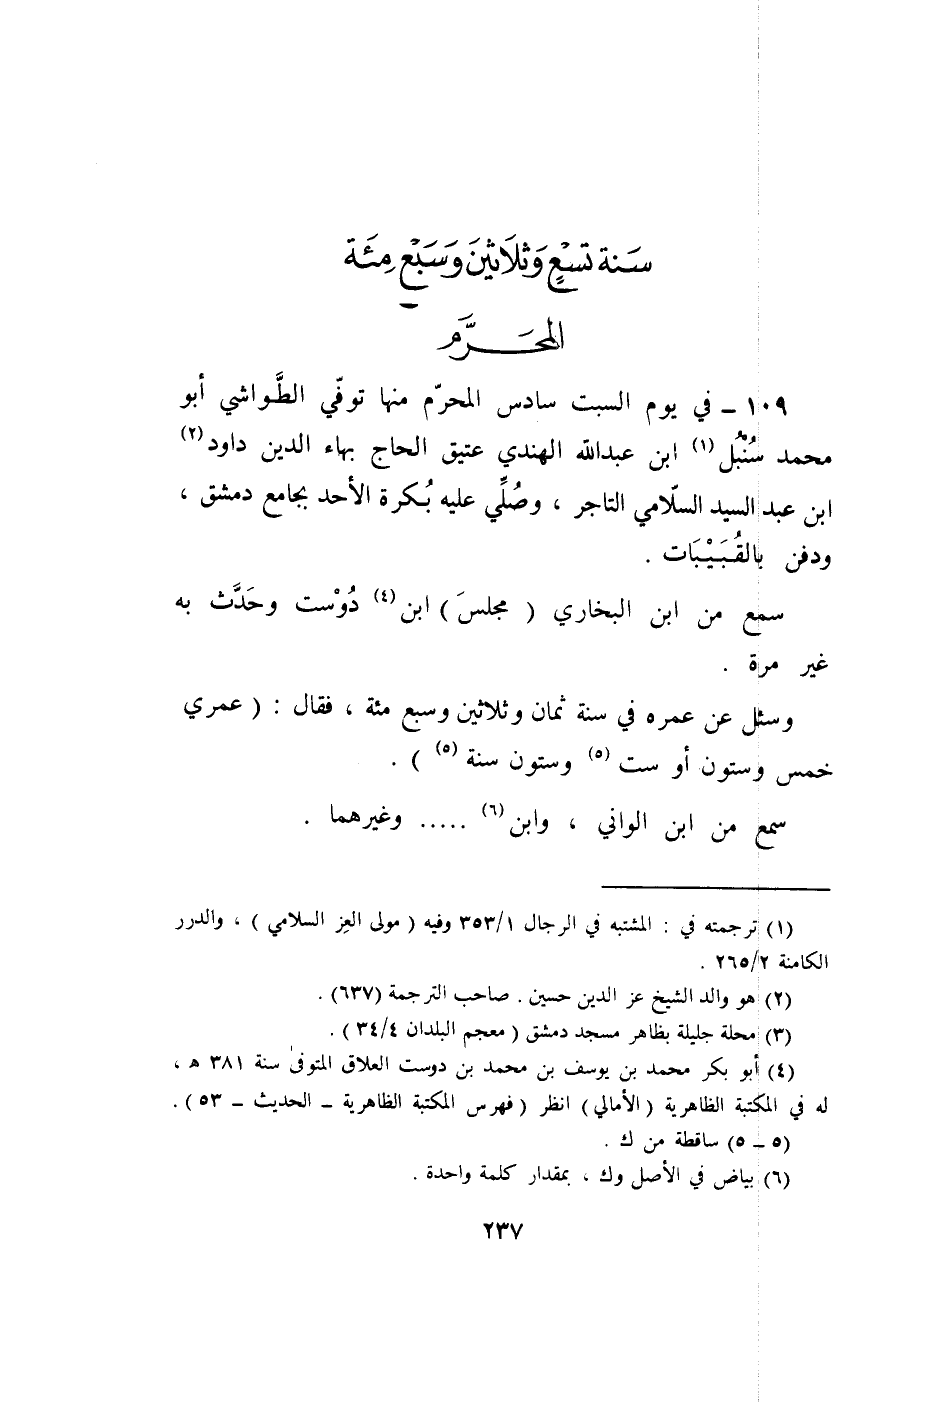 سَنة تسْعٍ وَثلاَثينَ وَسَبْعِ مِئَة
المحَرَّم
١٠٩ ـ في يوم السبت سادس المحرّم منها توفّي الطَّواشي أبو
محمد سُنْبُل (١) ابن عبدالله الهندي عتيق الحاج بهاء الدين داود (٢)
ابن عبد السيد السلّامي التاجر ، وصُلِّي عليه بُكرة الأحد بجامع دمشق ،
ودفن بالقُبَيْبَات .
سمع من ابن البخاري ( مجلسَ ) ابن (٤) دُوْست وحَدَّث به
غير مرة .
وسئل عن عمره في سنة ثمان وثلاثين وسبع مئة ، فقال : ( عمري
خمس وستون أو ست (٥) وستون سنة (٥) ) .
سمع من ابن الواني ، وابن (٦) ..... وغيرهما .
(١) ترجمته في : المشتبه في الرجال ٣٥٣/١ وفيه ( مولى العِز السلامي ) ، والدرر
الكامنة ٢٦٥/٢ .
(٢) هو والد الشيخ عز الدين حسين . صاحب الترجمة (٦٣٧) .
(٣) محلة جليلة بظاهر مسجد دمشق ( معجم البلدان ٣٤/٤ ) .
(٤) أبو بكر محمد بن يوسف بن محمد بن دوست العلاق المتوفىٰ سنة ٣٨١ هـ ،
له في المكتبة الظاهرية (الأمالي) انظر ( فهرس المكتبة الظاهرية ـ الحديث ـ ٥٣ ) .
(٥ ـ ٥) ساقطة من ك .
(٦) بياض في الأصل وك ، بمقدار كلمة واحدة .
٢٣٧